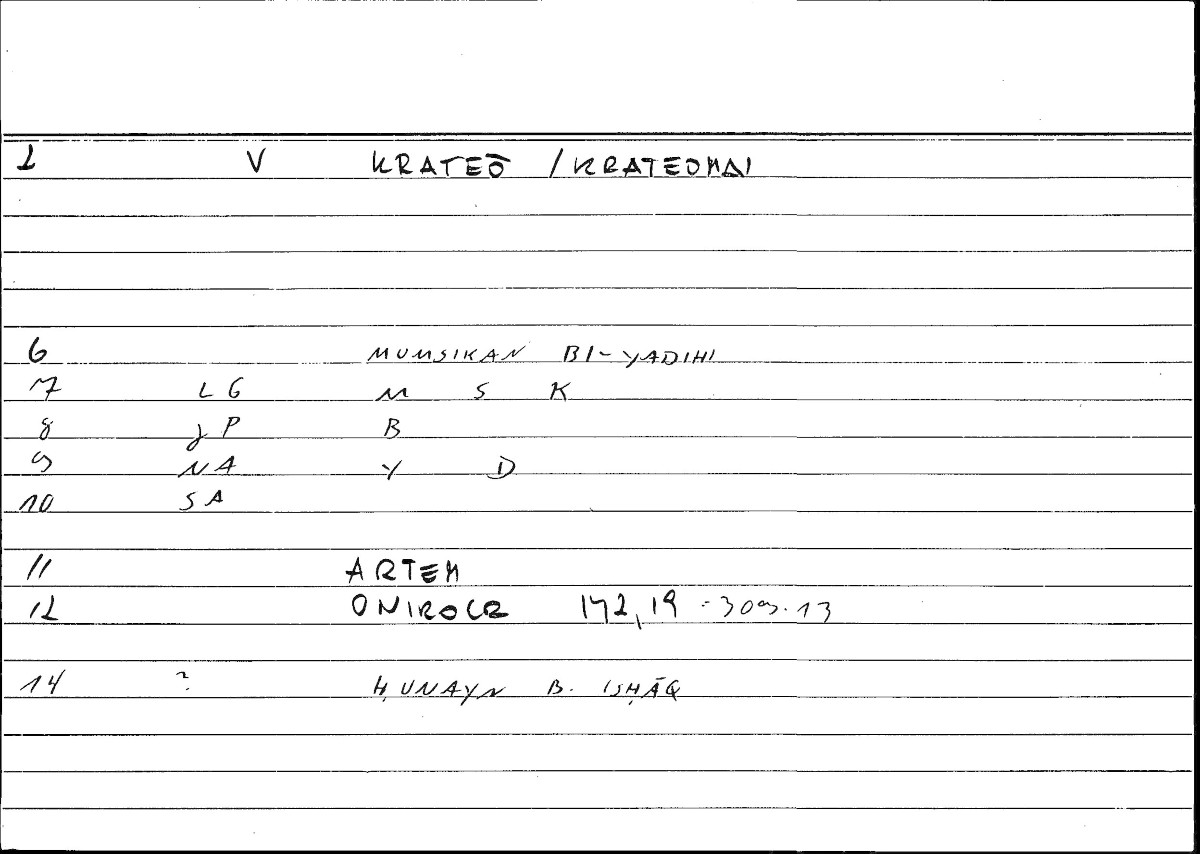 1 V KRATEŌ / KRATEOMAI
6 MUMSIKAN BI-YADIHI
7 LG M S K
8 JP B
9 NA Y D
10 SA
11 ARTEM
12 ONIROCR 142,19 - 309.13
14 ? ḤUNAYN B. ISḤĀQ